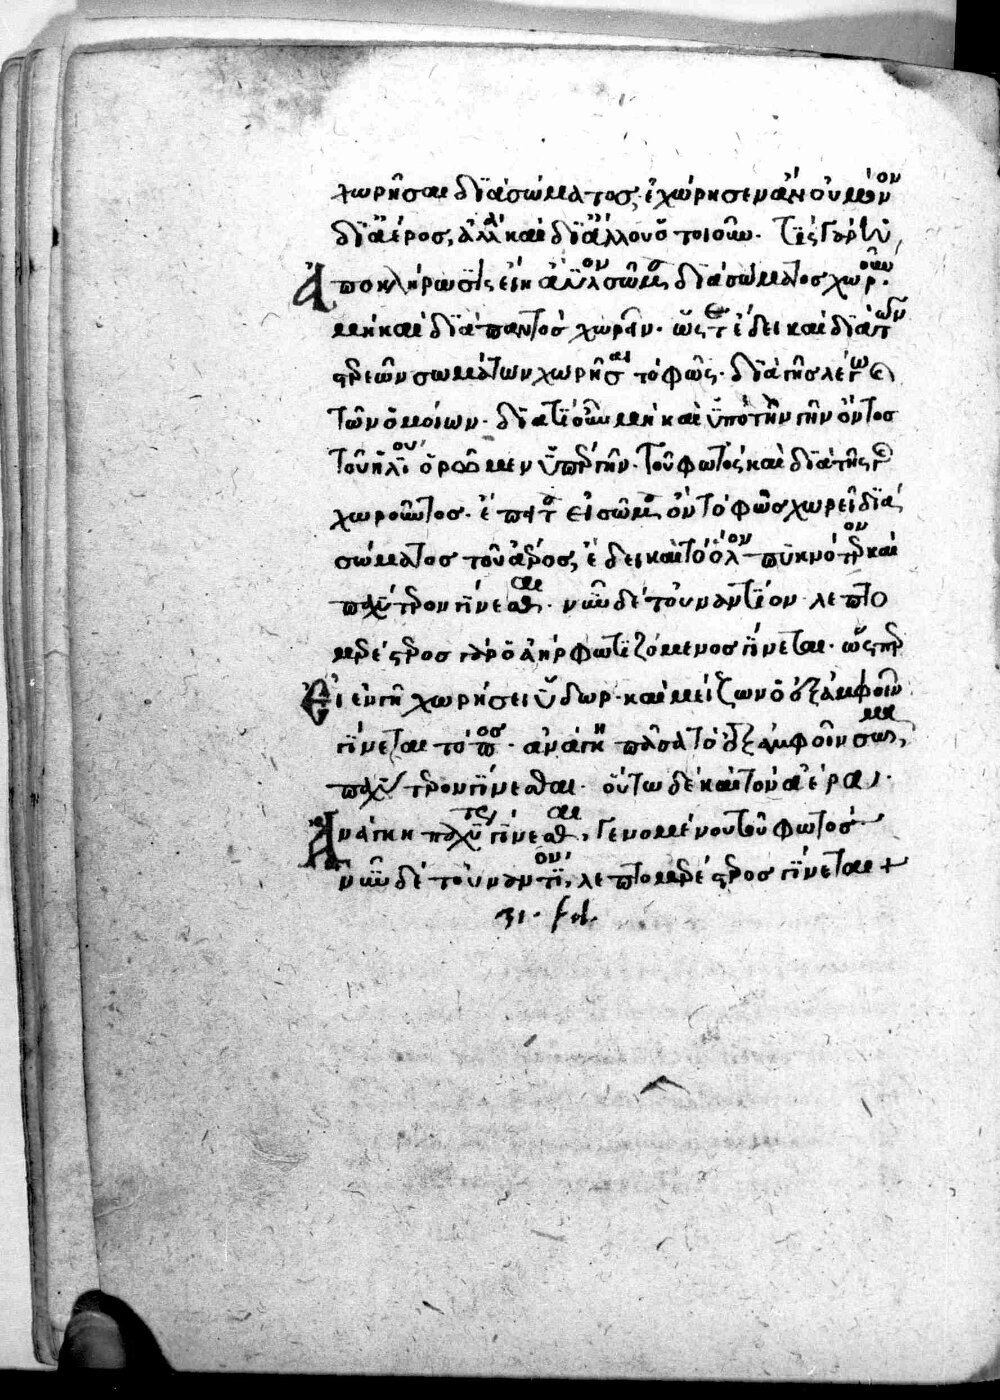 χωρῆσαι διὰ σώματος· ἐχώρησεν ἂν οὐ μόνον
δϊ ἀέρος, ἀλλὰ καὶ δϊ ἄλλου ὁτοιοῦν· τίς γὰρ
ἀποκλήρωσϊς εἰ κ σῶμα διὰ σώματος χωρ
μὴ καὶ διὰ παντὸς χωρεῖν· ὥστε ἔδει καὶ διὰ τῶν
στερεῶν σωμάτων χωρῆσαι τὸ φῶς· διὰ τῆς λέγω
τῶν ὁμοίων· διατί οὖν μὴ καὶ ὑπὸ τὴν γῆν ὄντος
τοῦ ἡλίου ὁρῶμεν ὑπὲρ γῆν· τοῦ φωτὸς καὶ διὰ τῆς γῆς
χωροῦντος· ἔπειτα εἰ σῶμα ὂν τὸ φῶς χωρεῖ διὰ
σώματος τοῦ ἀέρος, ἔδει καὶ τὸ ὅλον πυκνότερον καὶ
παχύτερον γίνεσθαι· νῦν δὲ τοὐναντίον λεπτο
μερέστερος γὰρ ὁ ἀὴρ φωτιζόμενος γίνεται· ὥσπερ
εἰ ἐν γῇ χωρήσει ὕδωρ· καὶ μείζων ὁ ἐξ ἀμφοῖν
γίνεται τόπος· ἀνάγκη πᾶσα τὸ ἐξ ἀμφοῖν σῶμα,
παχύτερον γίνεσθαι· οὕτω δὲ καὶ τὸν ἀέρα·
ἀνάγκη παχὺ γίνεσθαι, γενομένου τοῦ φωτός
νῦν δὲ τοὐναντίον, λεπτομερέστερος γίνεται +
31. fol.